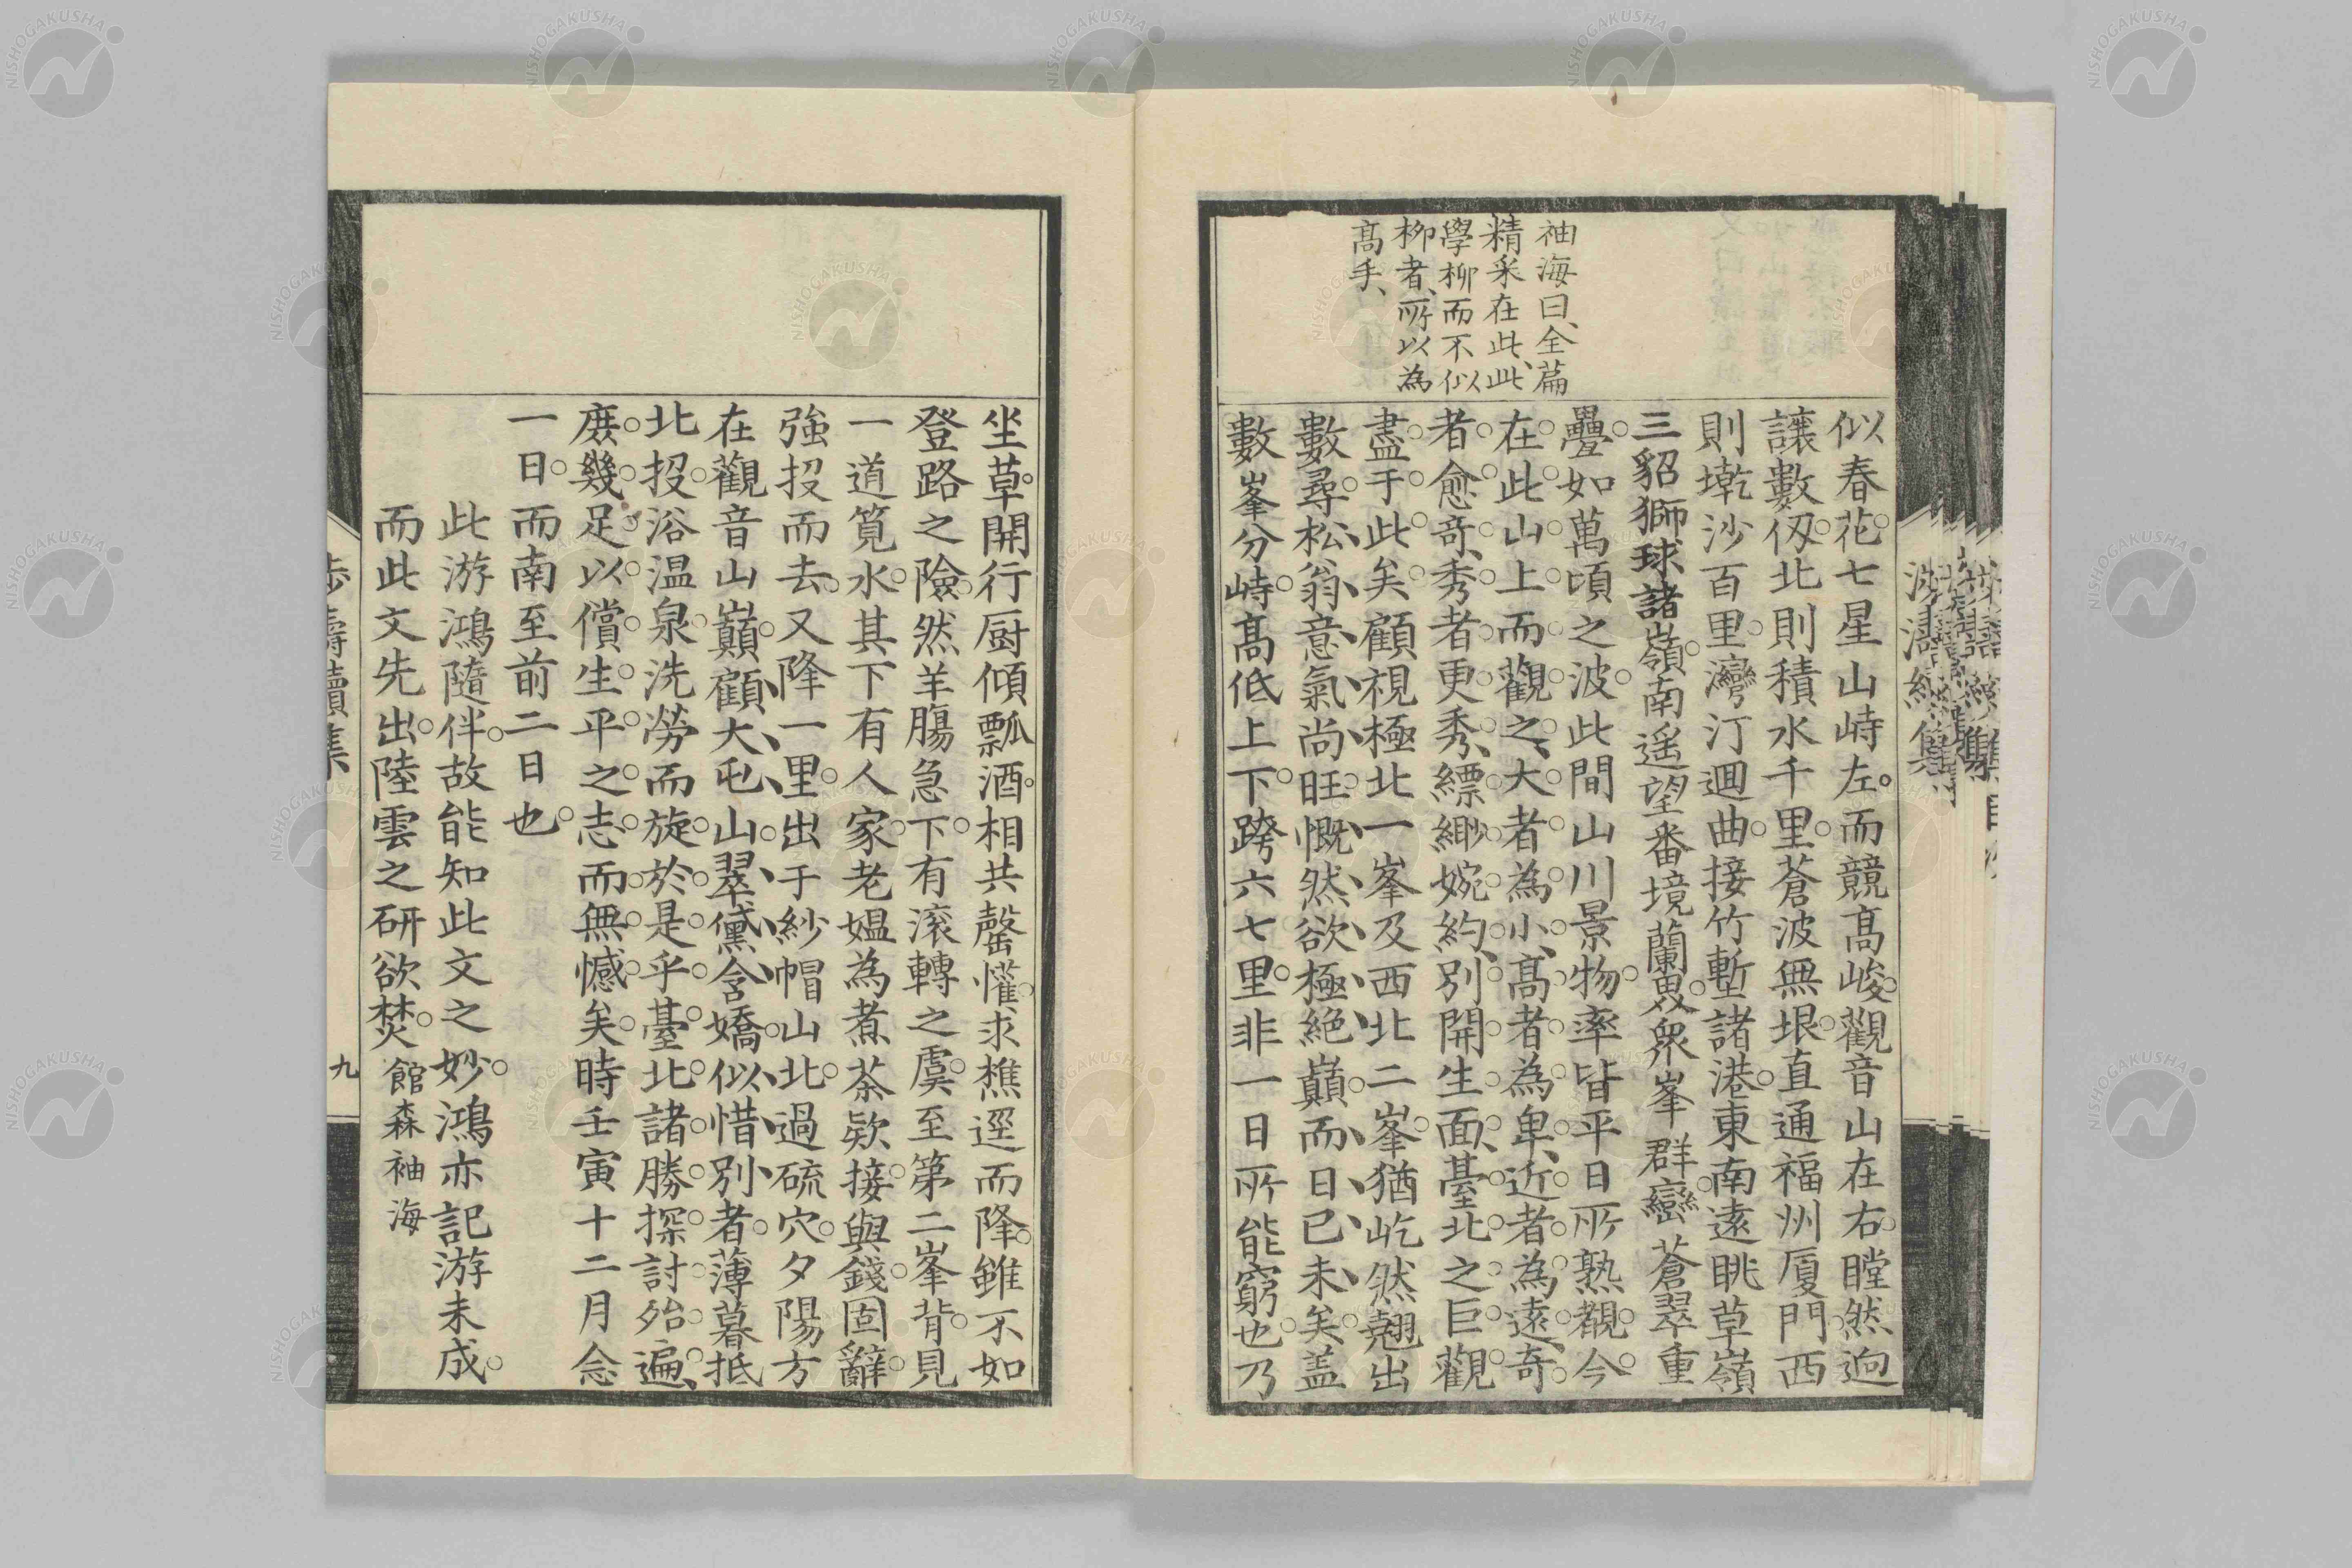 袖海曰、全篇
精采在此、此
學柳而不似
柳者、所以為
髙手、
似春花七星山峙左而競髙峻觀音山在右瞠然逈
讓數仭北則積水千里蒼波無垠直通福州厦門西
則墘沙百里灣汀週曲接竹塹諸港東南遠眺草嶺
三貂獅球諸嶺南遥望番境蘭㟴衆峯群巒蒼翠重
疊如萬頃之波此間山川景物率皆平日所熟覩今
在此山上而觀之、大者為小、髙者為卑、近者為遠、奇
者愈奇、秀者更秀、縹緲婉約、別開生面、臺北之巨觀
盡于此矣顧視極北一峯及西北二峯猶屹然翹出
數尋松翁意氣尚旺慨然欲極絶巔而日已未矣盖
數峯分峙髙低上下跨六七里非一日所能窮也乃
坐草開行厨傾瓢酒相共罄懽求樵逕而降雖不如
登路之險然羊膓急下有滚轉之虞至第二峯背見
一道筧水其下有人家老媪為煮茶欵接與錢固辭
強投而去又降一里出于紗帽山北過硫穴夕陽方
在觀音山巔顧大屯山翠黛含嬌似惜別者薄暮抵
北投浴温泉洗勞而旋於是乎臺北諸勝探討殆遍、
庶幾足以償生平之志而無憾矣時壬寅十二月念
一日而南至前二日也
此游鴻隨伴故能知此文之妙鴻亦記游未成
而此文先出陸雲之研欲焚 館森袖海
九
NISHOGAKUSHA